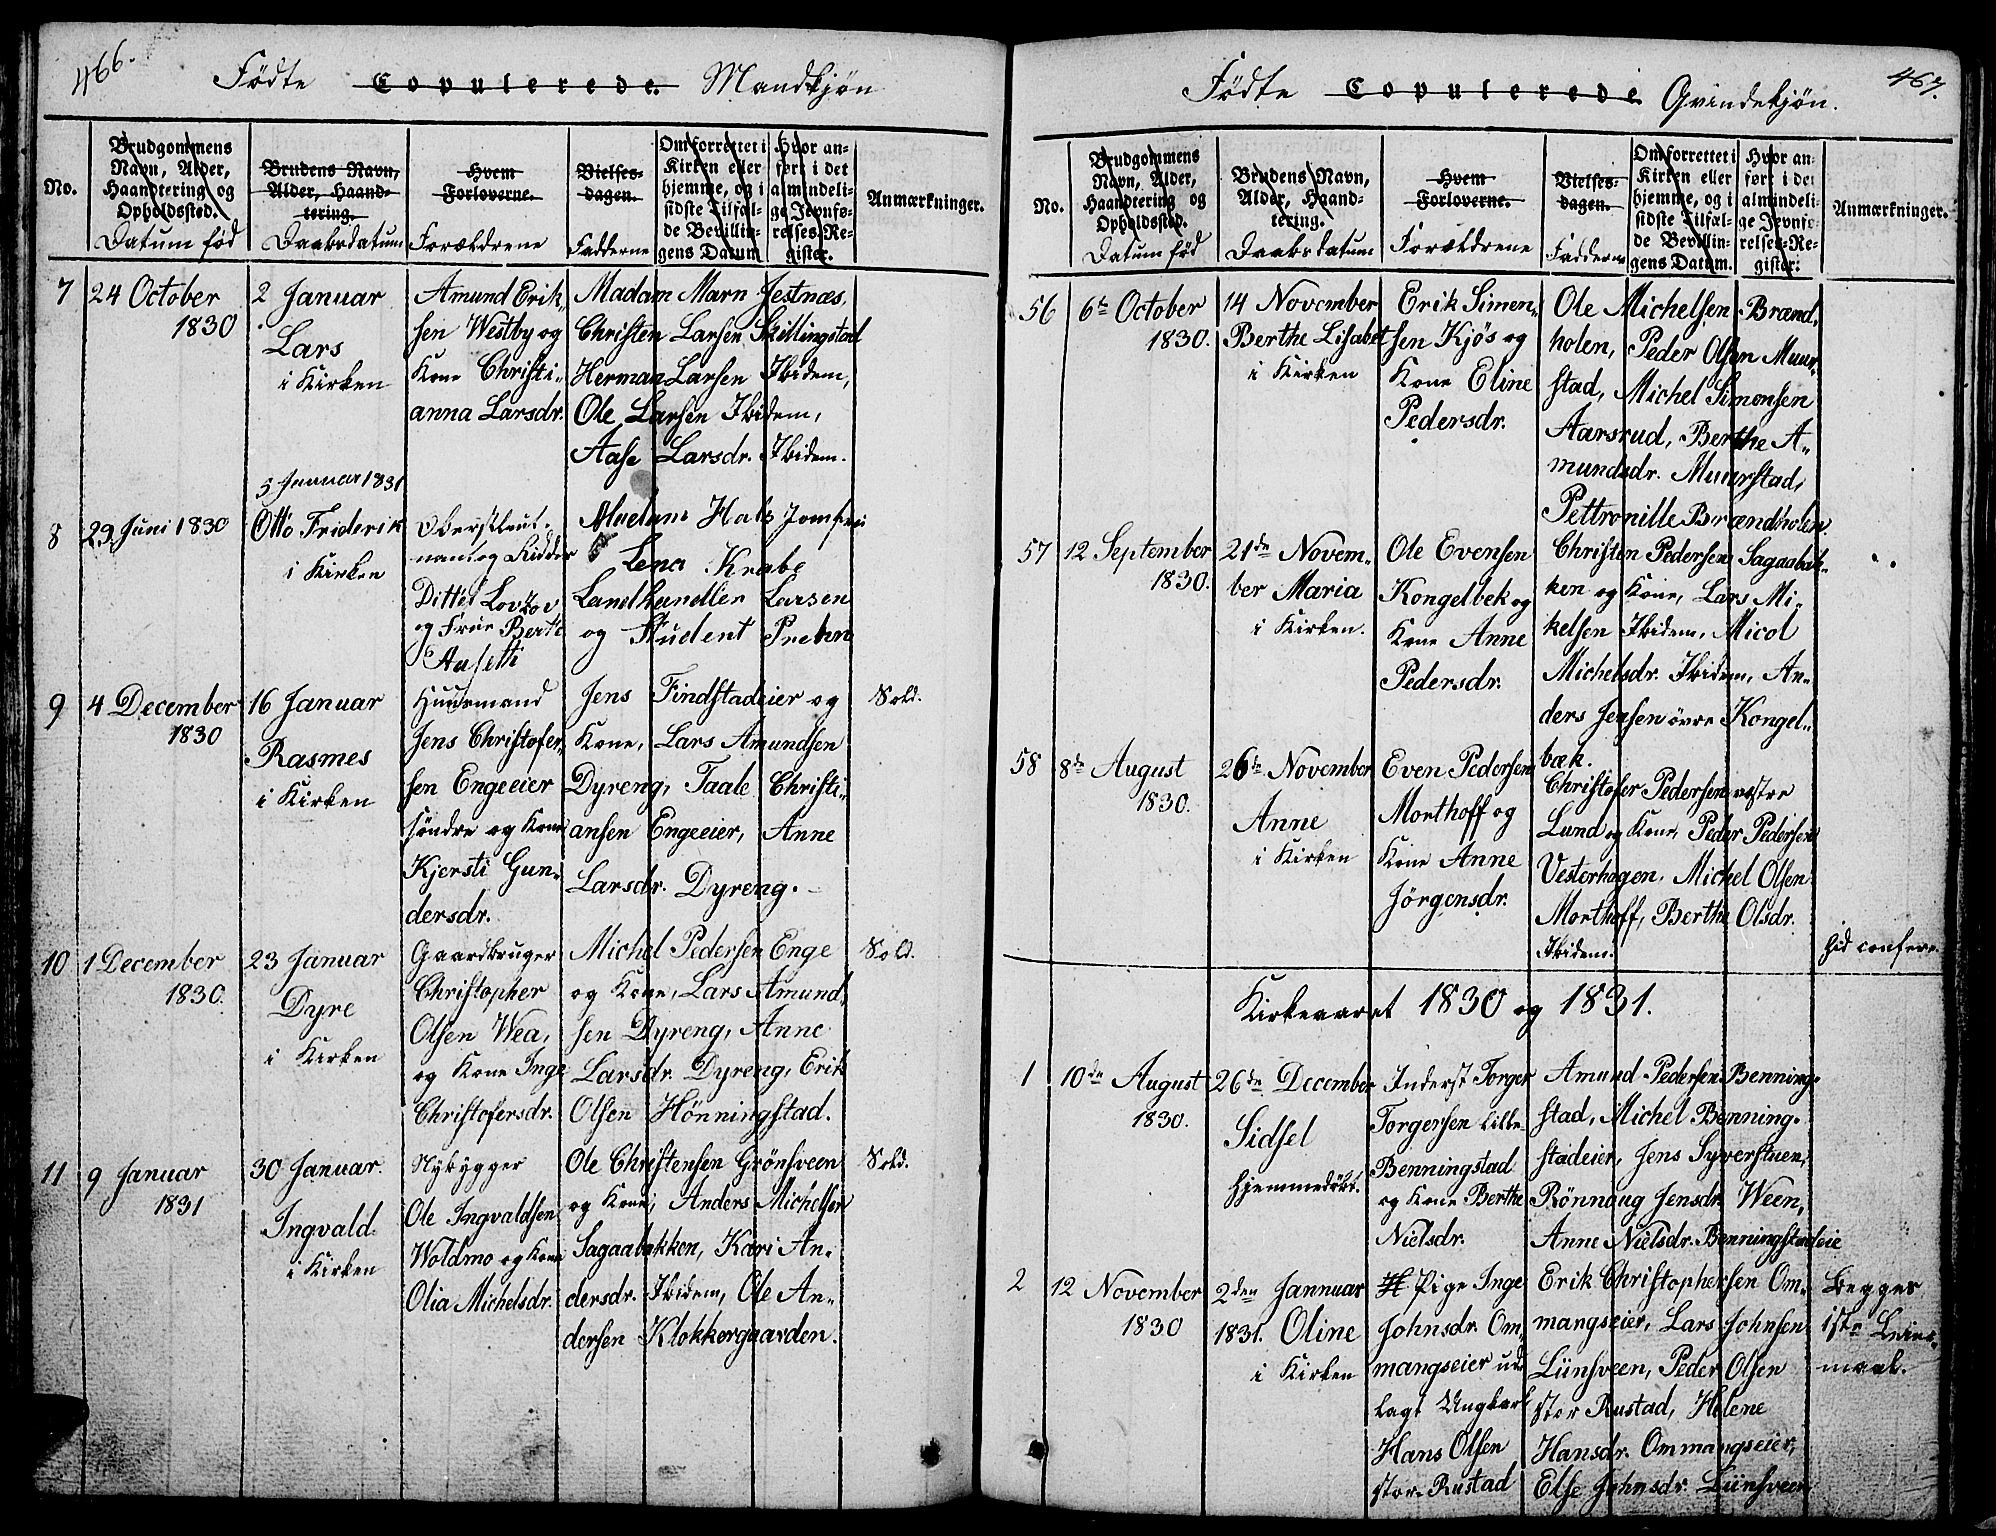 466.
Födte Copulerede. Mandkjön
No.
Brudgommens
Navn, Alder,
Haandtering og
Opholdssted.
Datum föd
Brudens Navn,
Alder, Haand-
tering.
Daabsdatum
Hvem
Forloverne.
Forældrene
Vielses-
dagen.
Fadderne
Om forrettet i
Kirken eller
hjemme, og i
sidste Tilfæl-
de Bevillin-
gens Datum
Hvor an-
fört i det
almindeli-
ge Jevnfö-
relses-Re-
gister.
Anmærkninger.
7
24 October
1830
2 Januar
Lars
i Kirken
Amund Erik-
sen Westby og
Kone Christi-
anna Larsdr.
Madam Marn Jestnæs,
Christen Larsen Skillingstad
Herman Larsen Ibidem,
Ole Larsen Ibidem,
Aase Larsdr. Ibidem.
8
29 Juni 1830
5 Januar 1831
Otto Friderik
i Kirken
Oberstleut-
nant og Ridder
Ditlef Lovzov
og Frue Berte
Madam Hals Jomfru
Lena Krabe
Landhandler Larsen
og Student Prebn
9
4 December
1830
16 Januar
Rasmes
i Kirken
Huusmand
Jens Christofer-
sen Engeeier
söndre og Kone
Kjersti Gun-
dersdr.
Jens Findstadeier og
Kone, Lars Amundsen
Dyreng, Taale Christi-
ansen Engeeier, Anne
Larsdr. Dyreng.
Sold.
10
1 December
1830.
23 Januar
Dyre
i Kirken
Gaardbruger
Christopher
Olsen Wea,
og Kone Inge
Christofersdr.
Michel Pedersen Enge
og Kone, Lars Amund-
sen Dyreng, Anne
Larsdr. Dyreng, Erik
Olsen Hönningstad.
Sold.
11
9 Januar
1831
30 Januar.
Ingvald
i Kirken
Nybygger
Ole Ingvaldsen
Woldmo og Kone
Olia Michelsdr.
Ole Christensen Grönsveen
og Kone, Anders Michelsen
Sagaabakken, Kari An-
dersdr. Ibidem, Ole An-
dersen Klokkergaarden.
Sold.
467.
Födte Copulerede Qvindekjön.
No.
Brudgommens
Navn, Alder,
Haandtering og
Opholdssted.
Datum föd
Brudens Navn,
Alder, Haand-
tering.
Daabsdatum
Hvem
Forloverne.
Forældrene
Vielses-
dagen.
Fadderne
Om forrettet i
Kirken eller
hjemme, og i
sidste Tilfæl-
de Bevillin-
gens Datum.
Hvor an-
fört i det
almindeli-
ge Jevnfö-
relses-Re-
gister:
Anmærkninger.
56
6te October
1830.
14 November
Berthe Lisabet
i Kirken
Erik Simen-
sen Kjös og
Kone Eline
Pedersdr.
Ole Michelsen Brænd-
holen, Peder Olsen Muur-
stad, Michel Simonsen
Aarsrud, Berthe A-
mundsdr. Muurstad,
Pettronille Brændholen
57
12 September
1830.
21de Novem-
ber Maria
i Kirken.
Ole Evensen
Kongelbek og
Kone Anne
Pedersdr.
Christen Pedersen Sagaabak-
ken og Kone, Lars Mi-
kelsen Ibidem, Micol
Michelsdr. Ibidem, An-
ders Jensen övre Kongel-
bæk.
58
8de August
1830.
26de November
Anne
i Kirken
Even Pedersen
Morthoff og
Kone Anne
Jörgensdr.
Christofer Pedersen vestre
Lund og Kone, Peder Pedersen
Vesterhagen, Michel Olsen
Morthoff, Berthe Olsdr.
Ibidem.
hid confere.
Kirkeaaret 1830 og 1831.
1
10de August
1830.
26de December
Sidsel
hjemmedöbt.
Inderst Torger
Torgersen Lille
Benningstad
og Kone Berthe
Nielsdr.
Amund Pedersen Benning-
stad, Michel Benning-
stadeier, Jens Syverstuen,
Rönnaug Jensdr. Ween,
Anne Nielsdr. Benningstadeie
2
12 November
1830
2den Januar
1831. Oline
i Kirken
Pige Inge
Johnsdr. Om-
mangseier ud-
lagt Ungkarl
Hans Olsen
stor-Rustad
Erik Christophersen Om-
mangseier, Lars Johnsen
Liinsveen, Peder Olsen
stor Rustad, Helene
Hansdr. Ommangseier,
Else Johnsdr. Liinsveen
Begges
1ste Leier-
maal.